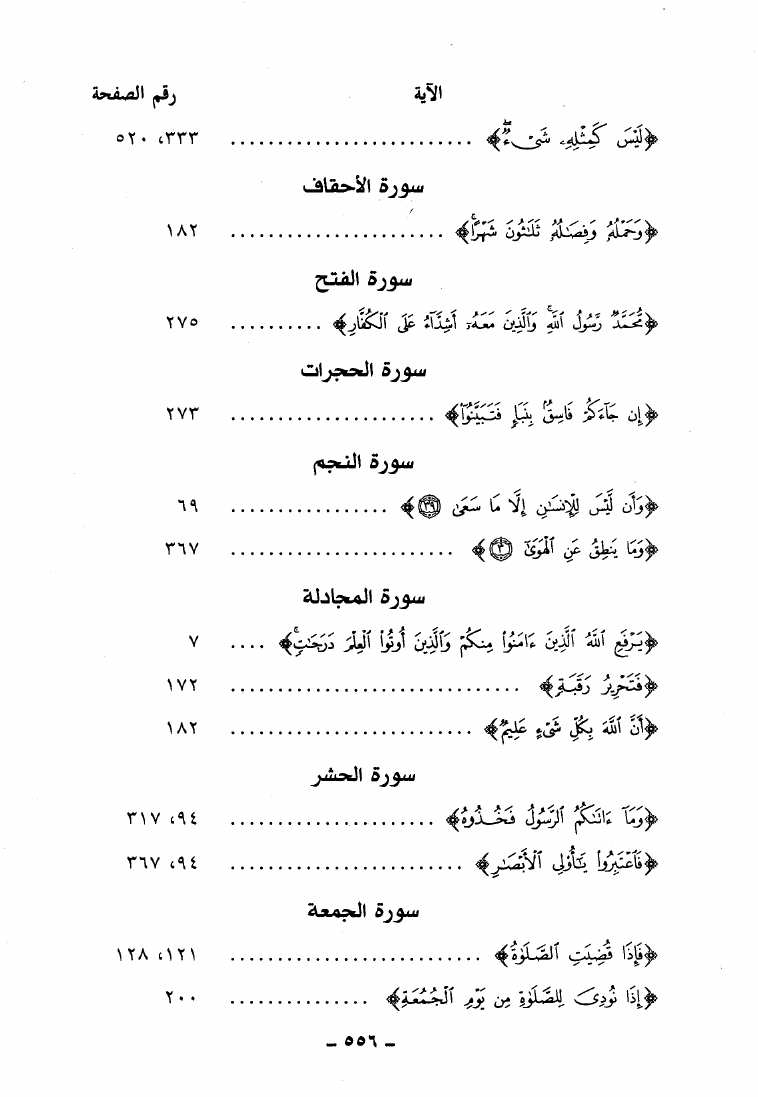 الآية رقم الصفحة
﴿لَيْسَ كَمِثْلِهِۦ شَىْءٌۖ﴾ .......................... ٣٣٣، ٥٢٠
سورة الأحقاف
﴿وَحَمْلُهُۥ وَفِصَـٰلُهُۥ ثَلَـٰثُونَ شَهْرًاۚ﴾ ...................... ١٨٢
سورة الفتح
﴿مُّحَمَّدٌ رَّسُولُ ٱللَّهِۚ وَٱلَّذِينَ مَعَهُۥٓ أَشِدَّآءُ عَلَى ٱلْكُفَّارِ﴾ .......... ٢٧٥
سورة الحجرات
﴿إِن جَآءَكُمْ فَاسِقٌۢ بِنَبَإٍ فَتَبَيَّنُوٓا۟﴾ ..................... ٢٧٣
سورة النجم
﴿وَأَن لَّيْسَ لِلْإِنسَـٰنِ إِلَّا مَا سَعَىٰ ٣٩﴾ ................. ٦٩
﴿وَمَا يَنطِقُ عَنِ ٱلْهَوَىٰٓ ٣﴾ ........................ ٣٦٧
سورة المجادلة
﴿يَرْفَعِ ٱللَّهُ ٱلَّذِينَ ءَامَنُوا۟ مِنكُمْ وَٱلَّذِينَ أُوتُوا۟ ٱلْعِلْمَ دَرَجَـٰتٍۚ﴾ .... ٧
﴿فَتَحْرِيرُ رَقَبَةٍ﴾ .............................. ١٧٢
﴿أَنَّ ٱللَّهَ بِكُلِّ شَىْءٍ عَلِيمٌ﴾ ......................... ١٨٢
سورة الحشر
﴿وَمَآ ءَاتَىٰكُمُ ٱلرَّسُولُ فَخُذُوهُ﴾ ..................... ٩٤، ٣١٧
﴿فَٱعْتَبِرُوا۟ يَـٰٓأُو۟لِى ٱلْأَبْصَـٰرِ﴾ ........................ ٩٤، ٣٦٧
سورة الجمعة
﴿فَإِذَا قُضِيَتِ ٱلصَّلَوٰةُ﴾ .......................... ١٢١، ١٢٨
﴿إِذَا نُودِىَ لِلصَّلَوٰةِ مِن يَوْمِ ٱلْجُمُعَةِ﴾ ............... ٢٠٠
- ٥٥٦ -